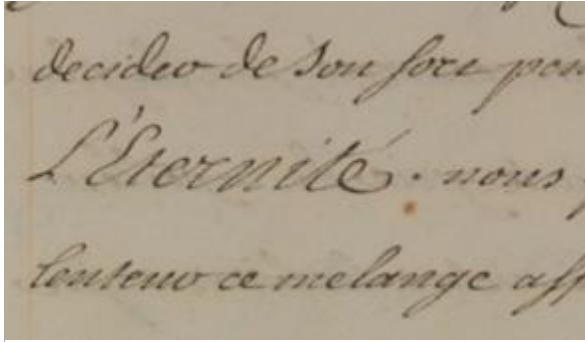 decider de son sort pour
L'Éternité. nous
l'entendre ce melange aff